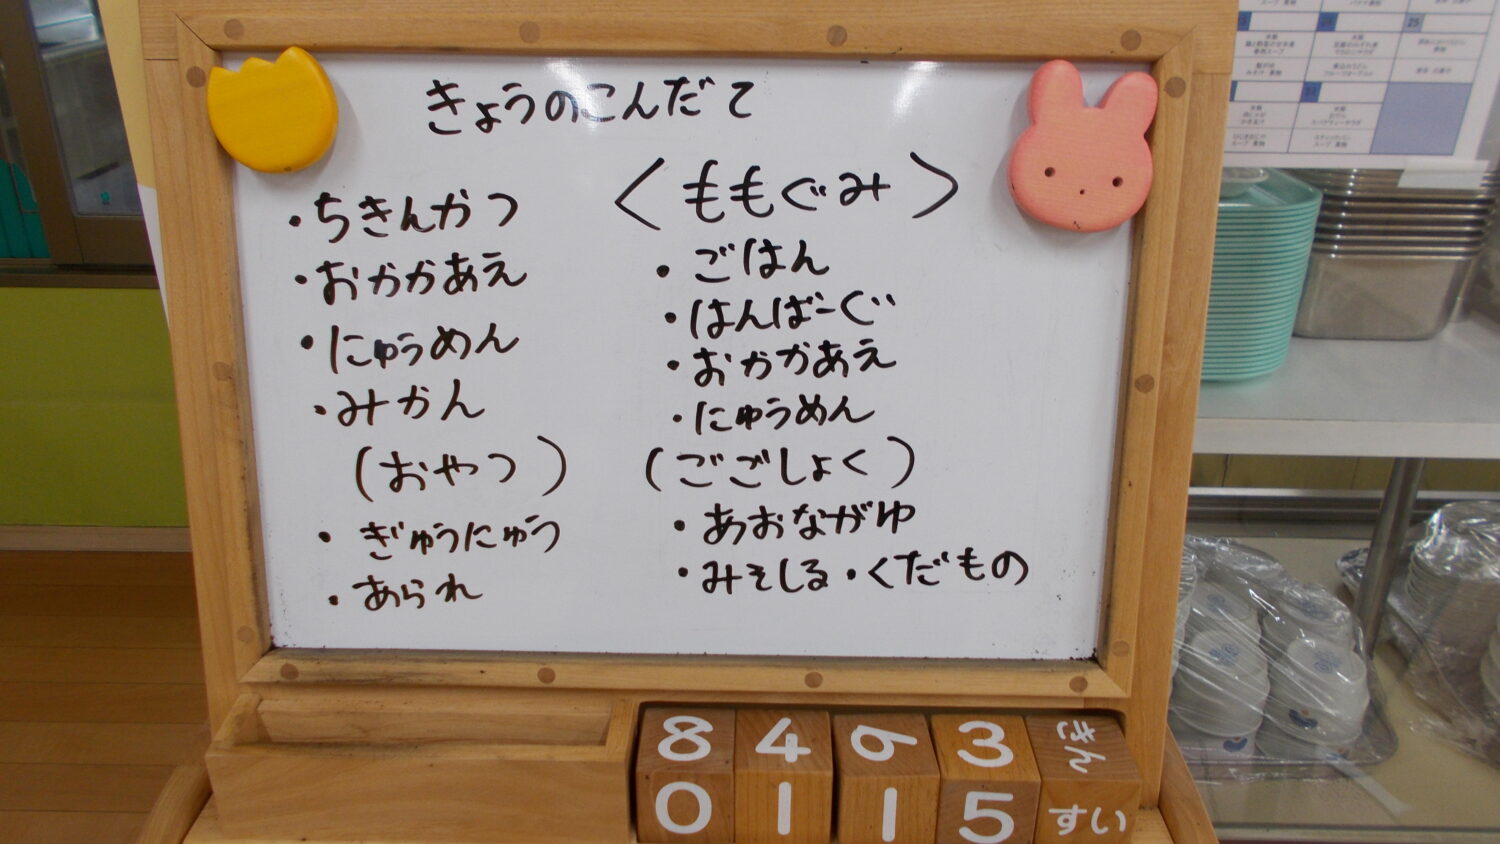 きょうのこんだて
・ちきんかつ
・おかかあえ
・にゅうめん
・みかん
(おやつ)
・ぎゅうにゅう
・あられ
〈ももぐみ〉
・ごはん
・はんばーぐ
・おかかあえ
・にゅうめん
(ごごしょく)
・あおながゆ
・みそしる・くだもの
8 4 6 3 きん
0 1 1 5 すい